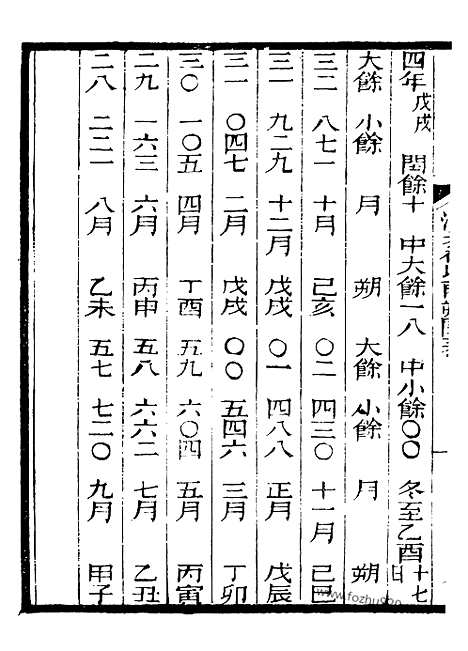 四年戊戌 閏餘十 中大餘一八 中小餘〇〇 冬至乙酉十七日
大餘 小餘 月 朔 大餘 小餘 月 朔
三二 八七一 十月 己亥 〇二 四三〇 十一月 己巳
三一 九二九 十二月 戊戌 〇一 四八八 正月 戊辰
三一 〇四七 二月 戊戌 〇〇 五四六 三月 丁卯
三〇 一〇五 四月 丁酉 五九 六〇四 五月 丙寅
二九 一六三 六月 丙申 五八 六六二 七月 乙丑
二八 二二一 八月 乙未 五七 七二〇 九月 甲子